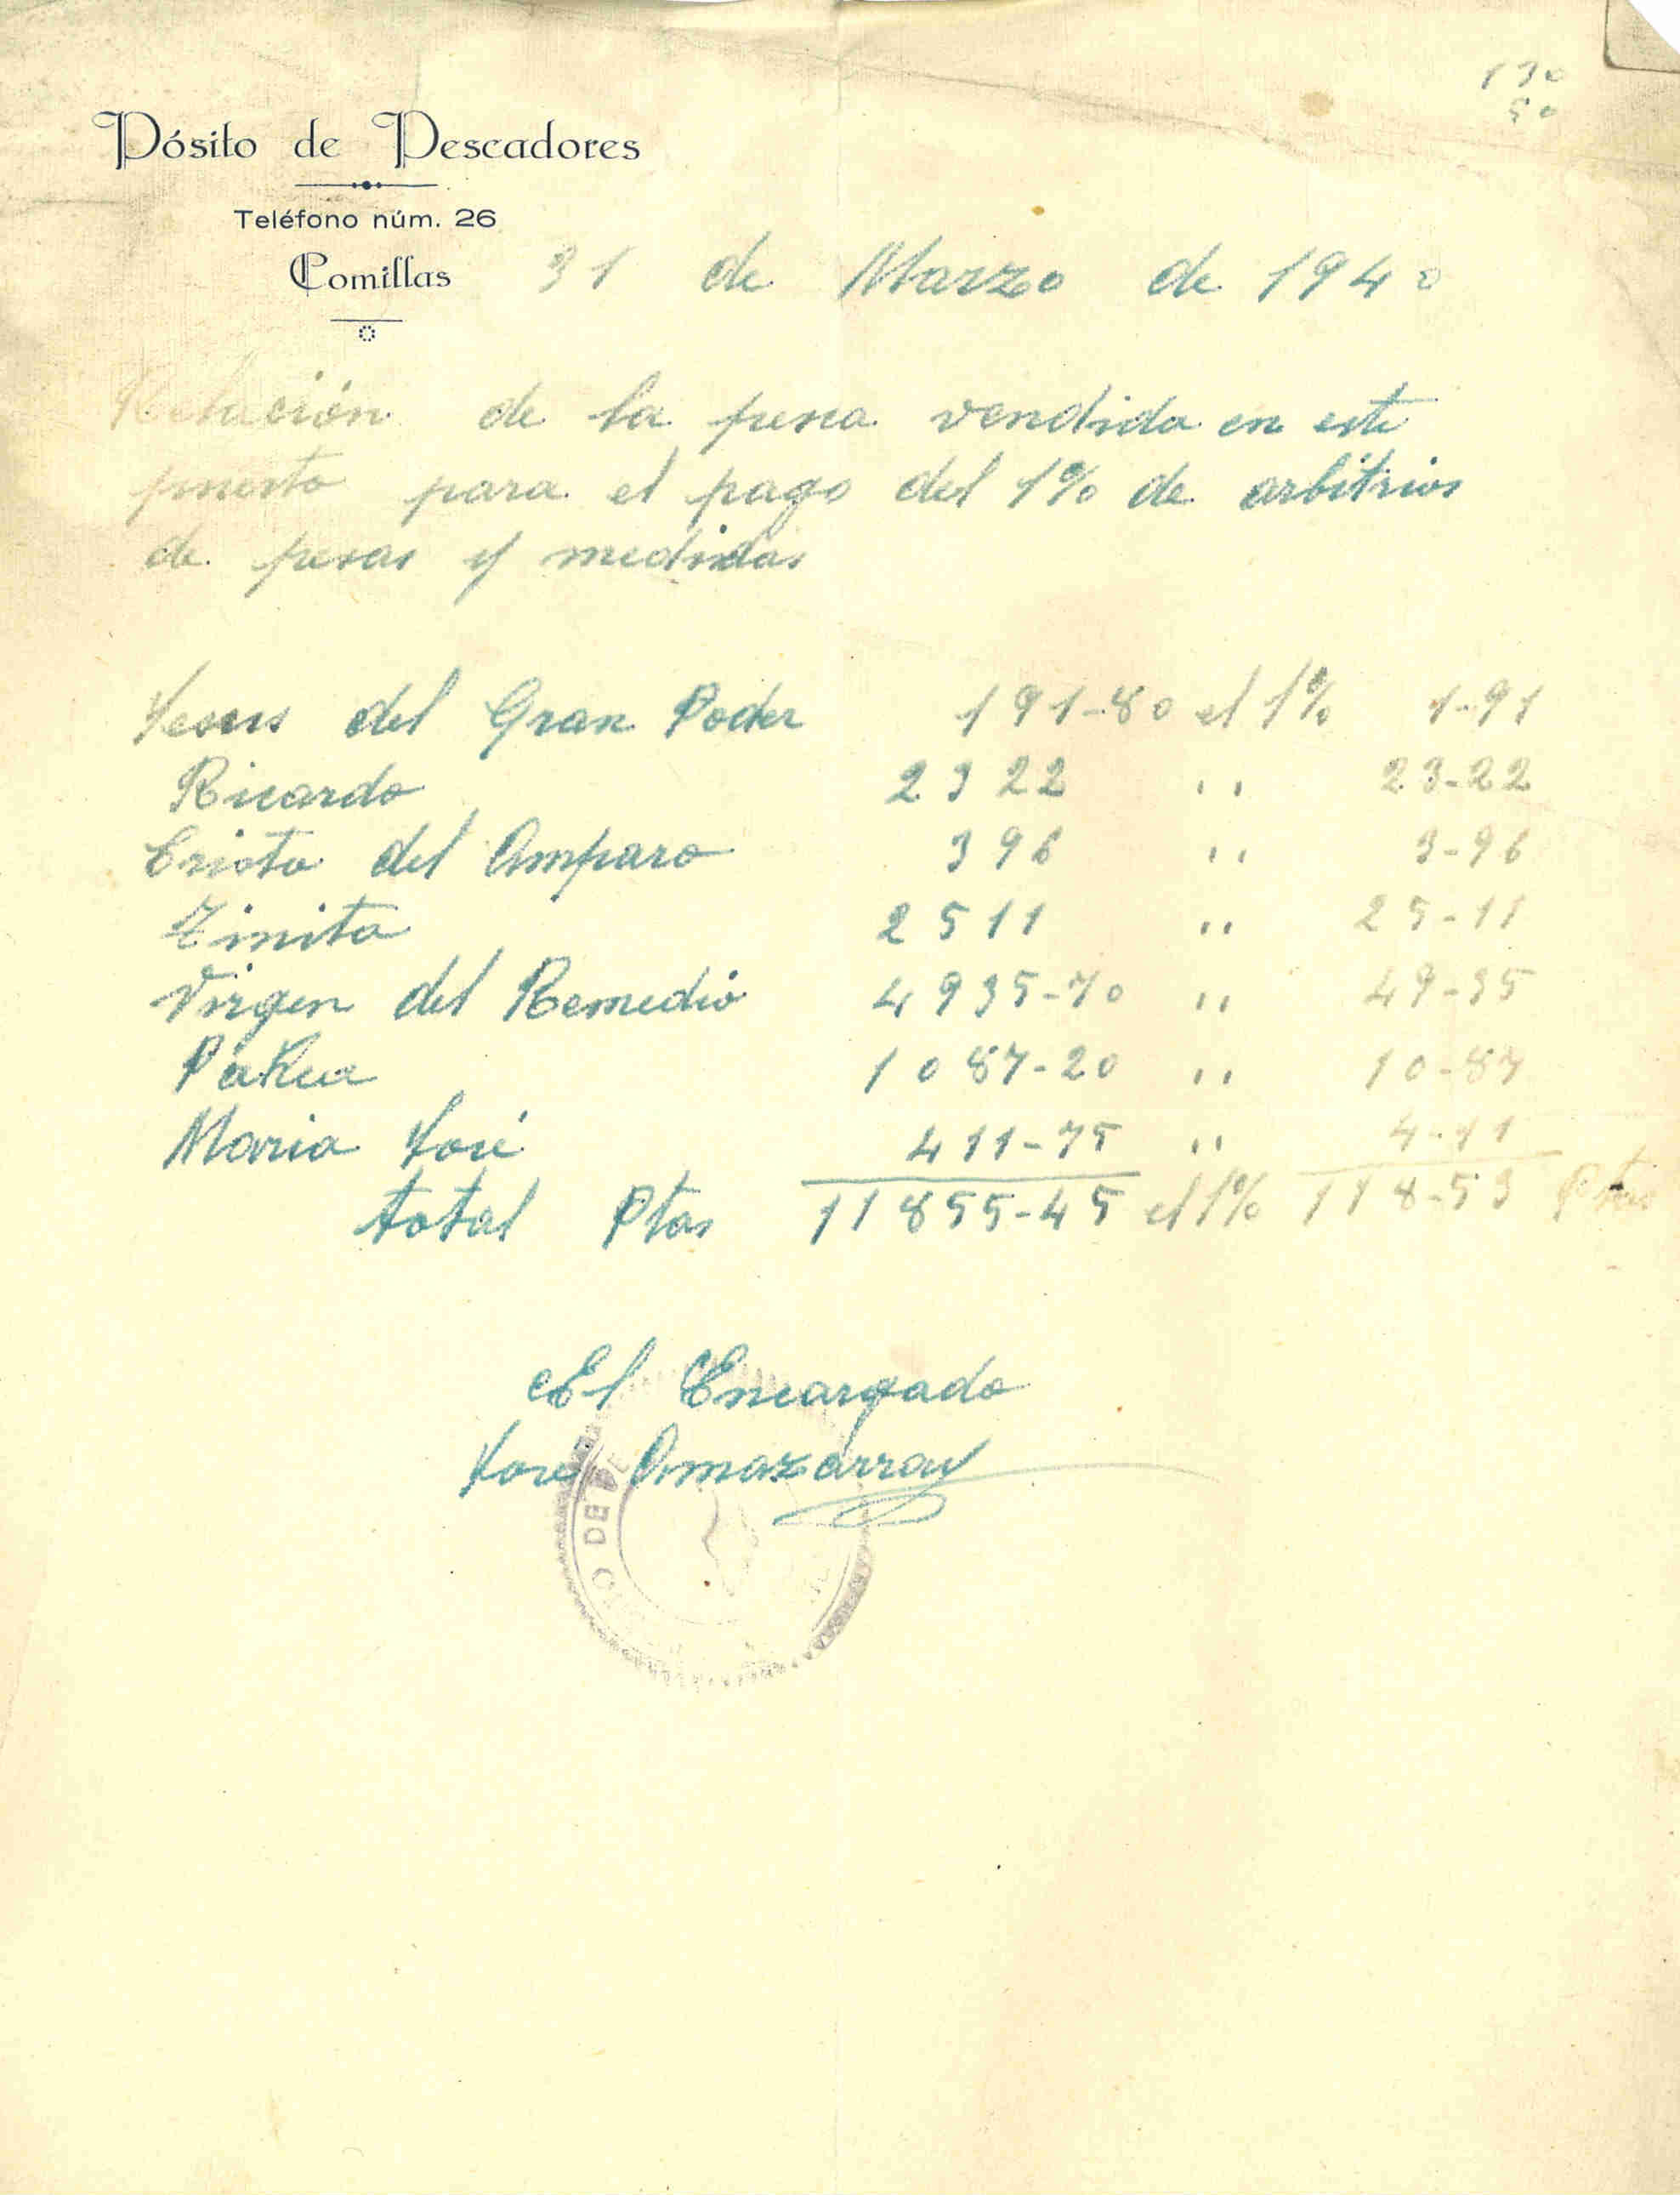 130
50
Pósito de Pescadores
Teléfono núm. 26
Comillas 31 de Marzo de 1940
Relación de la pesca vendida en este
puerto para el pago del 1% de arbitrios
de pesas y medidas
Jesus del Gran Poder 191-80 el 1% 1-91
Ricardo 2322 " 23-22
Cristo del Amparo 396 " 3-96
Tinita 2511 " 25-11
Virgen del Remedio 4935-70 " 49-35
Pakea 1087-20 " 10-87
Maria José 411-75 " 4-11
total Ptas 11855-45 el 1% 118-53 Ptas
El Encargado
José Amazarray
O DE PE